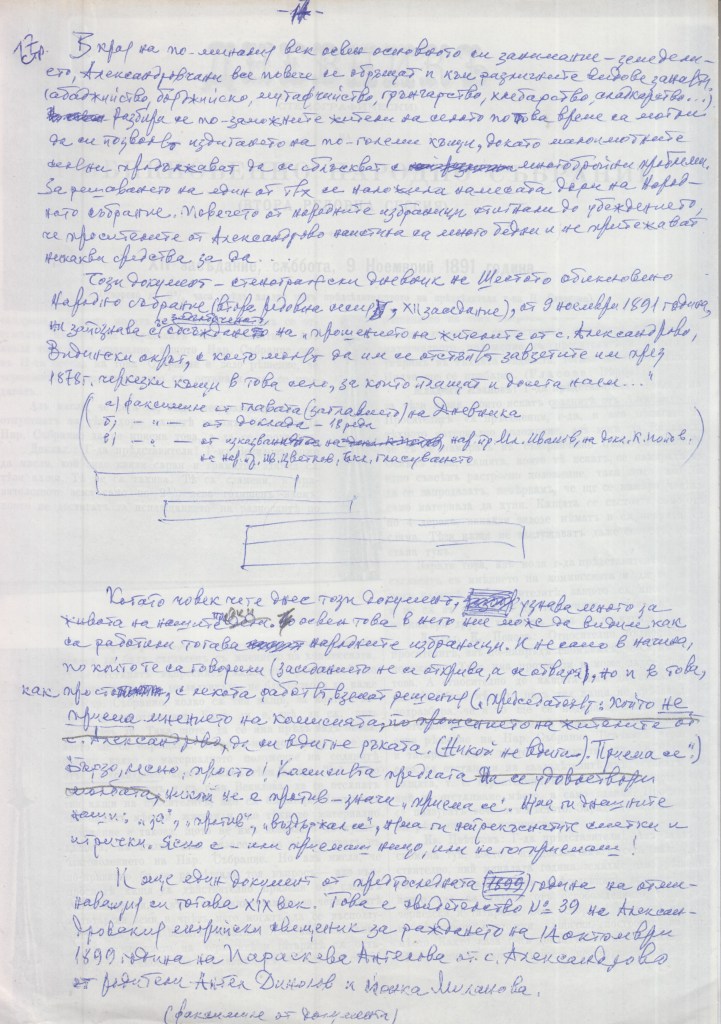 17 стр.
В края на по-миналия век освен основното си занимание – земедели-
ето, Александровчани все повече се обръщат и към различните видове занаяти
(абаджийство, бърджийско, мутафчийство, грънчарство, хлебарство, сладкарство...)
Разбира се по-заможните жители на селото по това време са могли
да си позволят издигането на по-големи къщи, докато малоимотните
селяни продължават да се сблъскват с многобройни проблеми.
За решаването на един от тях се наложила намесата дори на Народ-
ното събрание. Повечето от народните избраници стигнали до убеждението,
че просителите от Александрово наистина са много бедни и не притежават
никакви средства за да ....
Този документ – стенографски дневник на Шестото обикновено
Народно събрание (втора редовна сесия, XII заседание), от 9 ноември 1891 година,
ни запознава с обсъждането на „прошението на жителите от с. Александрово,
Видински окръг, с което молят да им се отстъпят завзетите им пред
1878 г. черкезки къщи в това село, за които плащат и досега наем..."
а) факсимиле от главата (заглавието) на Дневника
б) – „ – от доклада – 18 реда
в) – „ – от изказван на нар. пр. Мл. Иванов, на докл. К. Попов.
на нар. пр. Ив. Цветков, вкл. гласуването
Когато човек чете днес този документ, узнава много за
живота на нашите деди. освен това в него ние може да видим как
са работили тогава народните избраници. И не само в начина,
по който те са говорели (заседанието не се открива, а се отваря), но и в това,
как просто, с лекота работят, вземат решения („Председателят: Който не
приема мнението на комисията, по прошението на жителите от
с. Александрово, да си вдигне ръката. (Никой не вдига). Приема се".)
Бързо, ясно, просто! Комисията предлага да се удовлетвори
молбата, никой не е против – значи „приема се". Няма ги днешните
наши: „за", „против", „въздържал се", няма ги нейрекъснатите сметки и
игрички. Ясно е – или приемаш нещо, или не го приемаш!
И още един документ от предпоследната (1899) година на отми-
наващия си тогава XIX век. Това е свидетелство № 39 на Алексан-
дровския енорийски свещеник за раждането на 14 октомври
1899 година на Параскева Ангелова от с. Александрово
от родители Ангел Динолов и Миланова.
(факсимиле от документа)